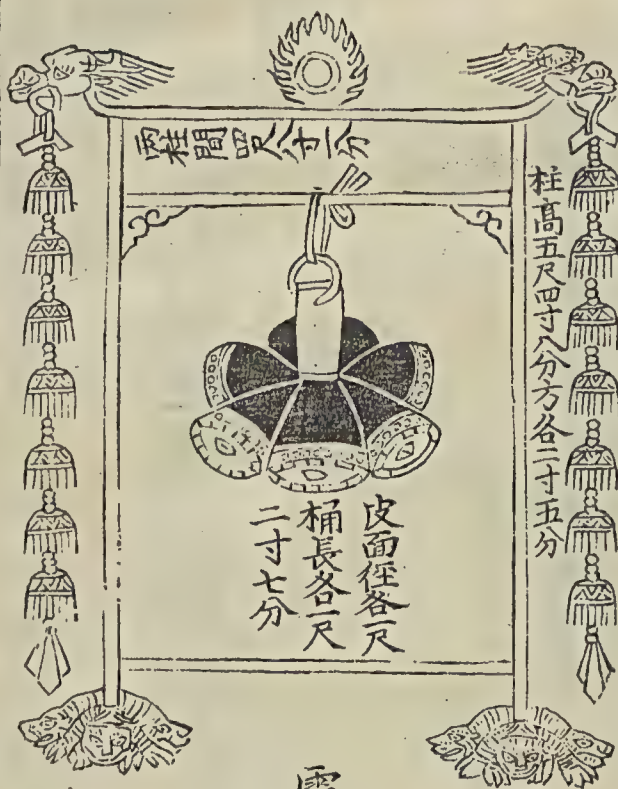 兩柱間四尺八寸一分
柱高五尺四寸八分方各二寸五分
皮面徑各一尺
桶長各一尺
二寸七分